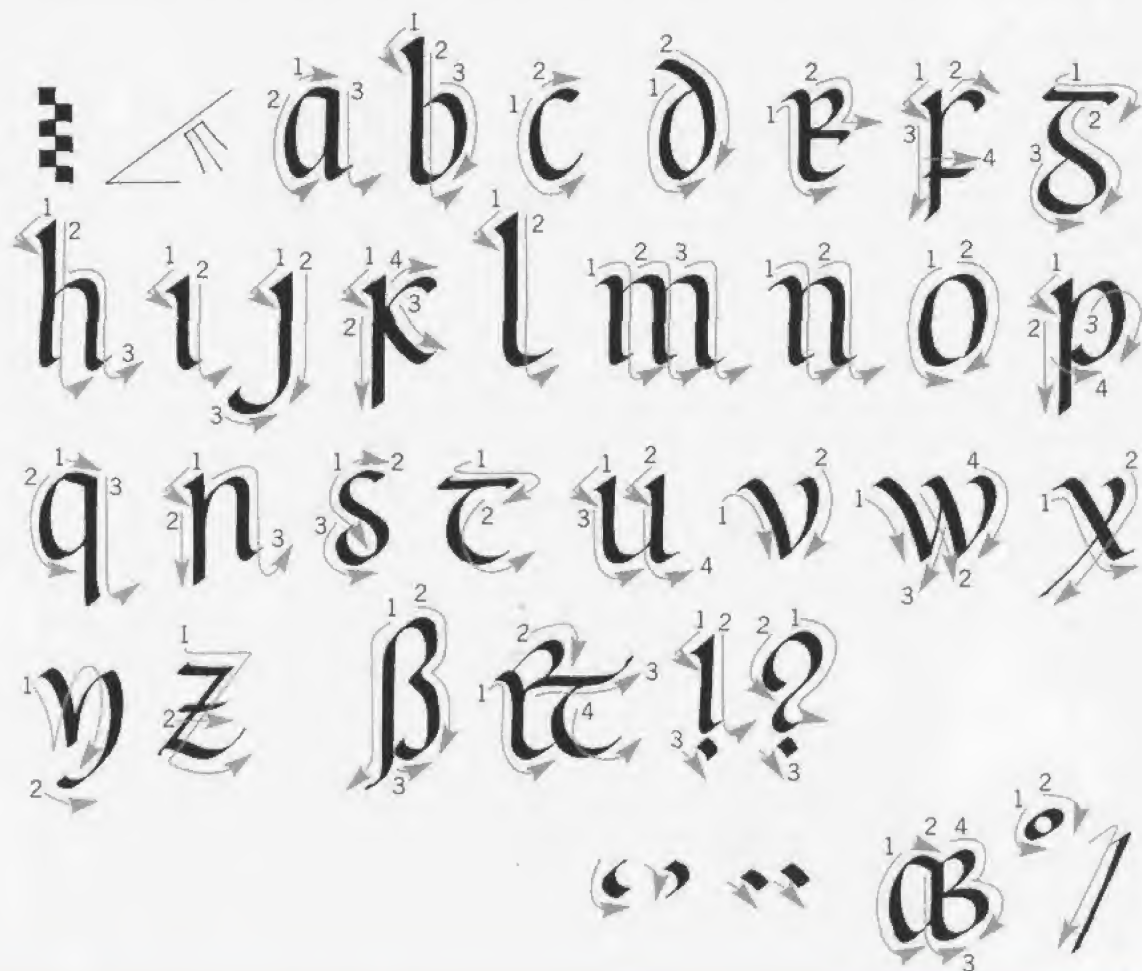 a b c d e f g
h i j k l m n o p
q r s t u v w x
y z ß & ! ?
‘ ’ ¨ æ ° /